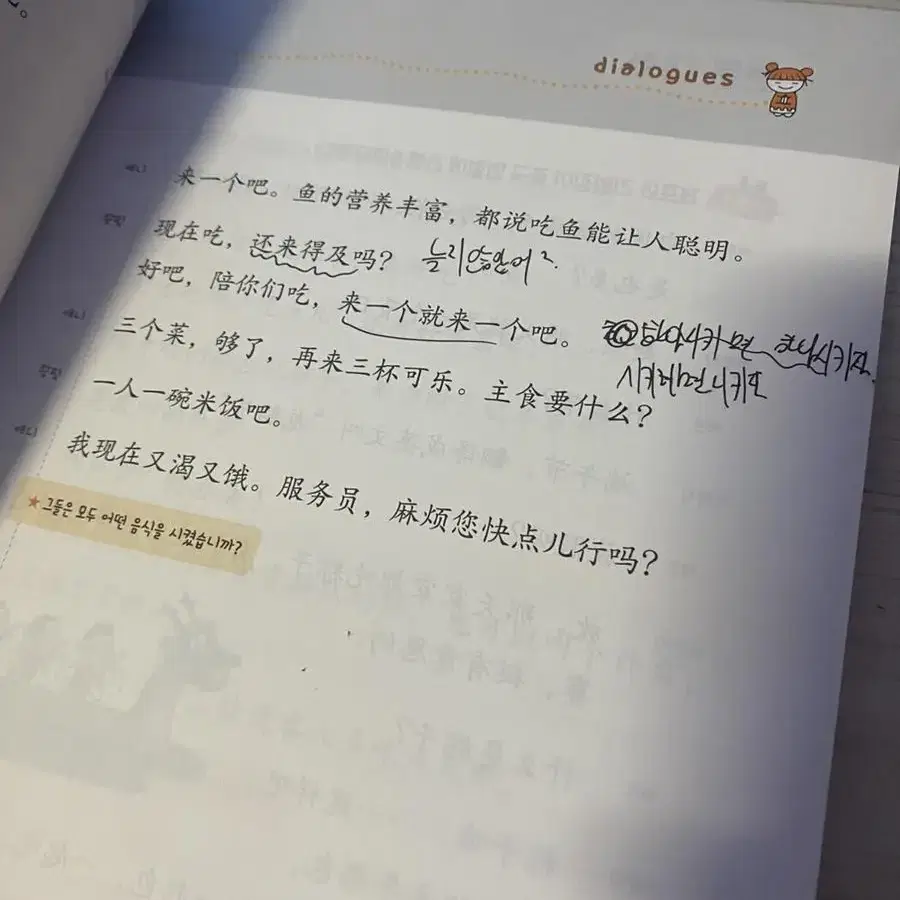 dialogues
애니 来一个吧。鱼的营养丰富，都说吃鱼能让人聪明。
现在吃，还来得及吗？ 늘리않았어?
好吧，陪你们吃，来一个就来一个吧。 하나시키면 하나시키자
애니 三个菜，够了，再来三杯可乐。主食要什么？ 시키려면시키자
一人一碗米饭吧。
애니 我现在又渴又饿。服务员，麻烦您快点儿行吗？
★그들은 모두 어떤 음식을 시켰습니까?